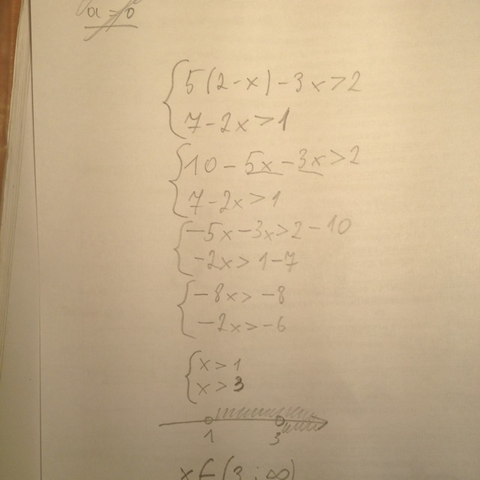 a = 0
5(2-x)-3x>2
7-2x>1
10-5x-3x>2
7-2x>1
-5x-3x>2-10
-2x>1-7
-8x>-8
-2x>-6
x>1
x>3
1 3
x∈(3;∞)